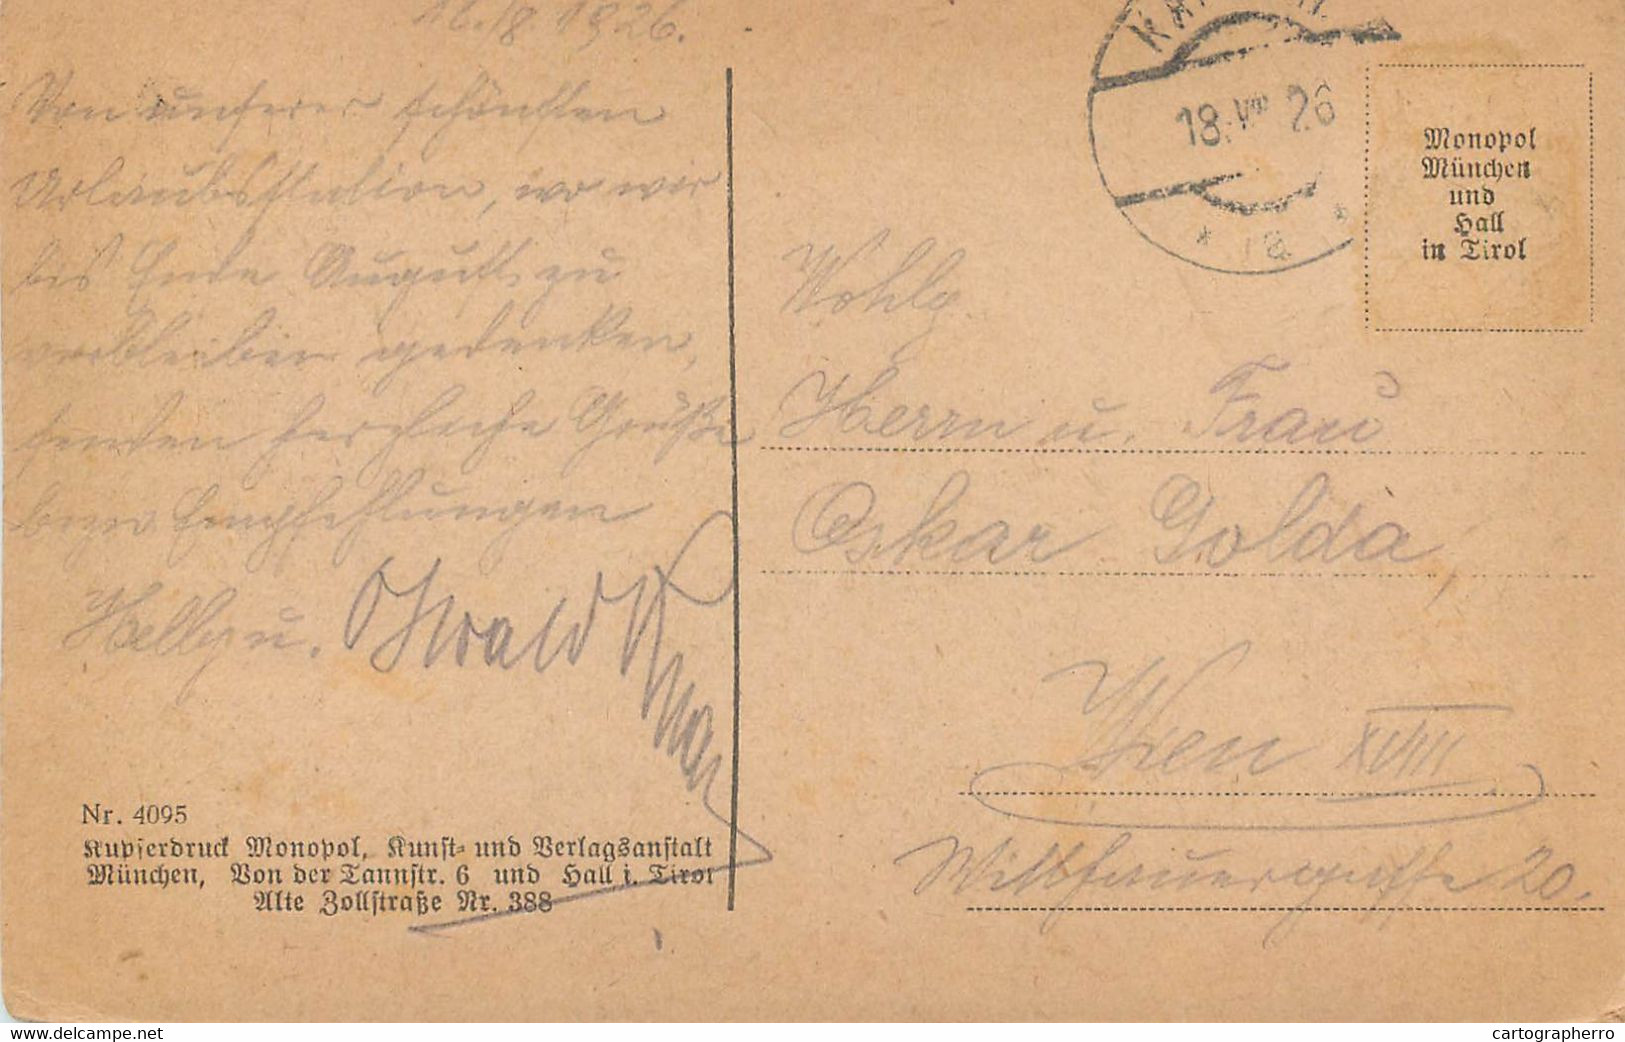 16./8 1926.
Von unserer schönsten
Urlaubsstation, wo wir
bis Ende August zu
verbleiben gedenken,
senden herzliche Grüße
bezw. Empfehlungen
Oswald
Nr. 4095
Kupferdruck Monopol, Kunst- und Verlagsanstalt
München, Von der Tannstr. 6 und Hall i. Tirol
Alte Zollstraße Nr. 388
18.VIII 26
* 1a *
Monopol
München
und
Hall
in Tirol
Wohlg.
Herrn u. Frau
Oskar Golda,
Wien XVIII
20.
delcampe.net
cartographerro